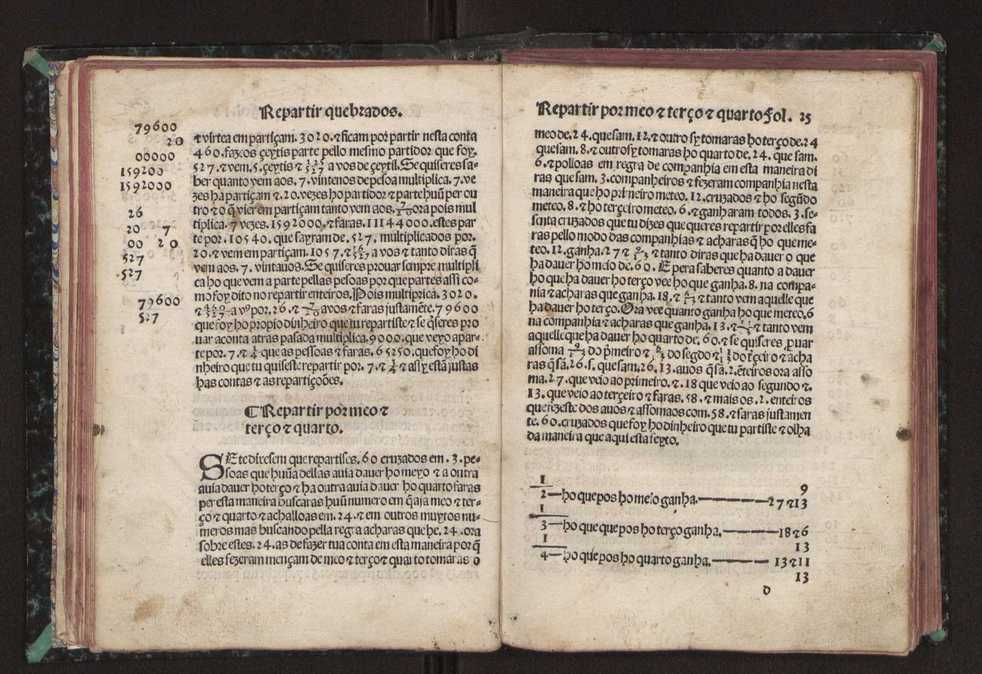 Repartir quebrados.
79600
20
00000
159200
1592000
26
20 7
00 20
527
527
79600
527
⁊ virtea em partiçam. 3020. ⁊ ficam por partir nesta conta
460. fazeos çeytis parte pello mesmo partidor que foy.
527. ⁊ vem. 5. çeytis ⁊ avos de çeytil. Se quiseres sa-
ber quanto vem aos. 7. vintenos de pesoa multiplica. 7. ve-
zes ha partiçam ⁊. 20. vezes ho partidor ⁊ parte hũu per ou
tro ⁊ o q̃ vier em partiçam tanto vem aos. 7/20 ora pois mul
tiplica. 7 vezes. 1592000. ⁊ faras. 11144000. estes par
te por. 10540. que sayram de. 527. multiplicados por.
20. ⁊ vem em partiçam. 1057. ⁊ avos ⁊ tanto diras q̃
vem aos. 7. vintauos. Se quiseres prouar sempre multipli
ca ho que vem a parte pellas pesoas por que partes assi co-
mo foy dito no repartir enteiros. Pois multiprica. 3020.
⁊ a vos por. 26. ⁊ 7/20 avos ⁊ faras justamẽte. 79600
que foy ho propio dinheiro que tu repartiste ⁊ se q̃seres pro
uar aconta atras pasada multiplica. 9000. que veyo apar-
te por. 7. ⁊ 1/4 que as pessoas ⁊ faras. 65250. que foy ho di
nheiro que tu quiseste repartir por. 7. ⁊ 1/4 ⁊ assy estã justas
has contas ⁊ as repartiçoões.
¶ Repartir por meo ⁊
terço ⁊ quarto.
SE te dixesem que repartises. 60 cruzados em. 3. pe-
soas que hũua dellas auia dauer ho meyo ⁊ a outra
auia dauer ho terço ⁊ ha outra auia dauer ho quarto faras
per esta maneira buscaras huũ numero em q̃ aja meo ⁊ ter-
ço ⁊ quarto ⁊ achalloas em. 24. ⁊ em outros muytos nu-
meros mas buscando pella regra acharas que he. 24. ora
sobre estes. 24. as de fazer tua conta em esta maneira por q̃
elles fezeram mençam de meo ⁊ terço ⁊ quarto tomaras o
Repartir por meo ⁊ terço ⁊ quarto Fol. 25
meo de. 24. que sam. 12. ⁊ outro sy tomaras ho terço de. 24
que sam. 8. ⁊ outrosy tomaras ho quarto de. 24. que sam.
6. ⁊ polloas em regra de companhia em esta maneira di
ras que sam. 3. companheiros ⁊ fezeram companhia nesta
maneira que ho primeiro meteo. 12. cruzados ⁊ ho segũdo
meteo. 8. ⁊ ho terçeiro meteo. 6. ⁊ ganharam todos. 3. se-
senta cruzados que tu dizes que queres repartir por elles fa
ras pello modo das companhias ⁊ acharas q̃ ho que me-
teo. 12. ganha. 27 ⁊ 9/13 ⁊ tanto diras que ha dauer o que
ha dauer ho meio de. 60. E pera saberes quanto a dauer
ho que ha dauer ho terço vee ho que ganha. 8. na compa-
nia ⁊ acharas que ganha. 18. ⁊ 6/13 ⁊ tanto vem aquelle que
ha dauer ho terço. Ora vee quanto ganha ho que meteo. 6
na companhia ⁊ acharas que ganha. 13. ⁊ 11/13 ⁊ tanto vem
aquelle que ha dauer ho quarto de. 60. ⁊ se quiseres, prouar
assoma 9/13 do primeiro ⁊ 6/13 do segdo ⁊ 11/13 do terçeiro ⁊ acha
ras q̃ sã. 26. s. que sam. 26. 13. auos q̃ sã. 2. ẽteiros ora asso
ma. 27. que veio ao primeiro. ⁊. 18 que veio ao segundo ⁊.
13. que veio ao terçeiro ⁊ faras. 58. ⁊ mais os. 2. enteiros
que fezeste dos auos ⁊ assomaos com. 58. ⁊ faras justamen
te. 60. cruzados que foy ho dinheiro que tu partiste ⁊ olha
da maneira que aqui esta feyto.
1 9
2—ho que pos ho meio ganha.——27 ⁊ 13
1
3—ho que que pos ho terço ganha.——18 ⁊ 6
1 13
4—ho que pos ho quarto ganha.——13 ⁊ 11
13
d